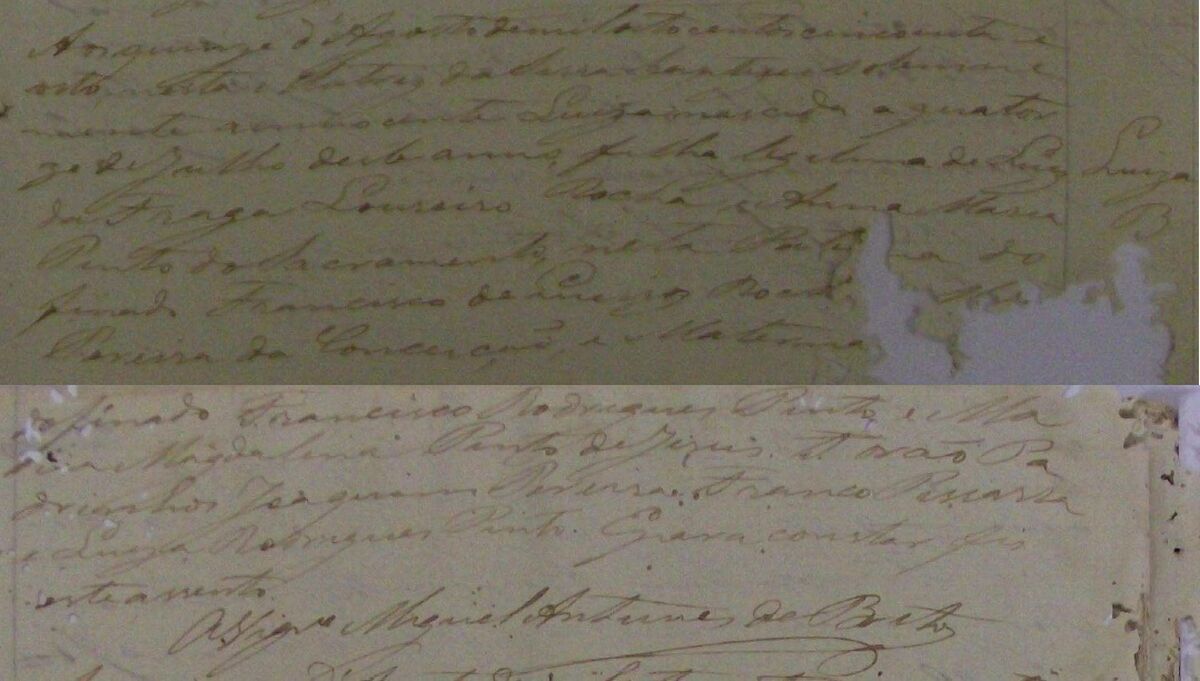 Aos quinze d'Agosto de mil oito centos cincoenta e
oito, nesta Matriz da Serra baptizei solemne
mente a innocente Luiza nascida a quator
ze de Julho deste anno, filha legitima de Luiz
da Fraga Loureiro Rocha e Anna Maria
Pinto do Sacramento, neta Pat na do
finado Francisco de Rocha
Pereira da Conceição, e Materna
do finado Francisco Rodrigues Pinto, e Ma
ria Magdalena Pinto de Jezus. Forão Pa
drinhos Joaquim Pereira Franco Pissarra
e Luiza Rodrigues Pinto. E para constar fis
este assento.
Assigno Miguel Antunes de Brito
Luiza
B